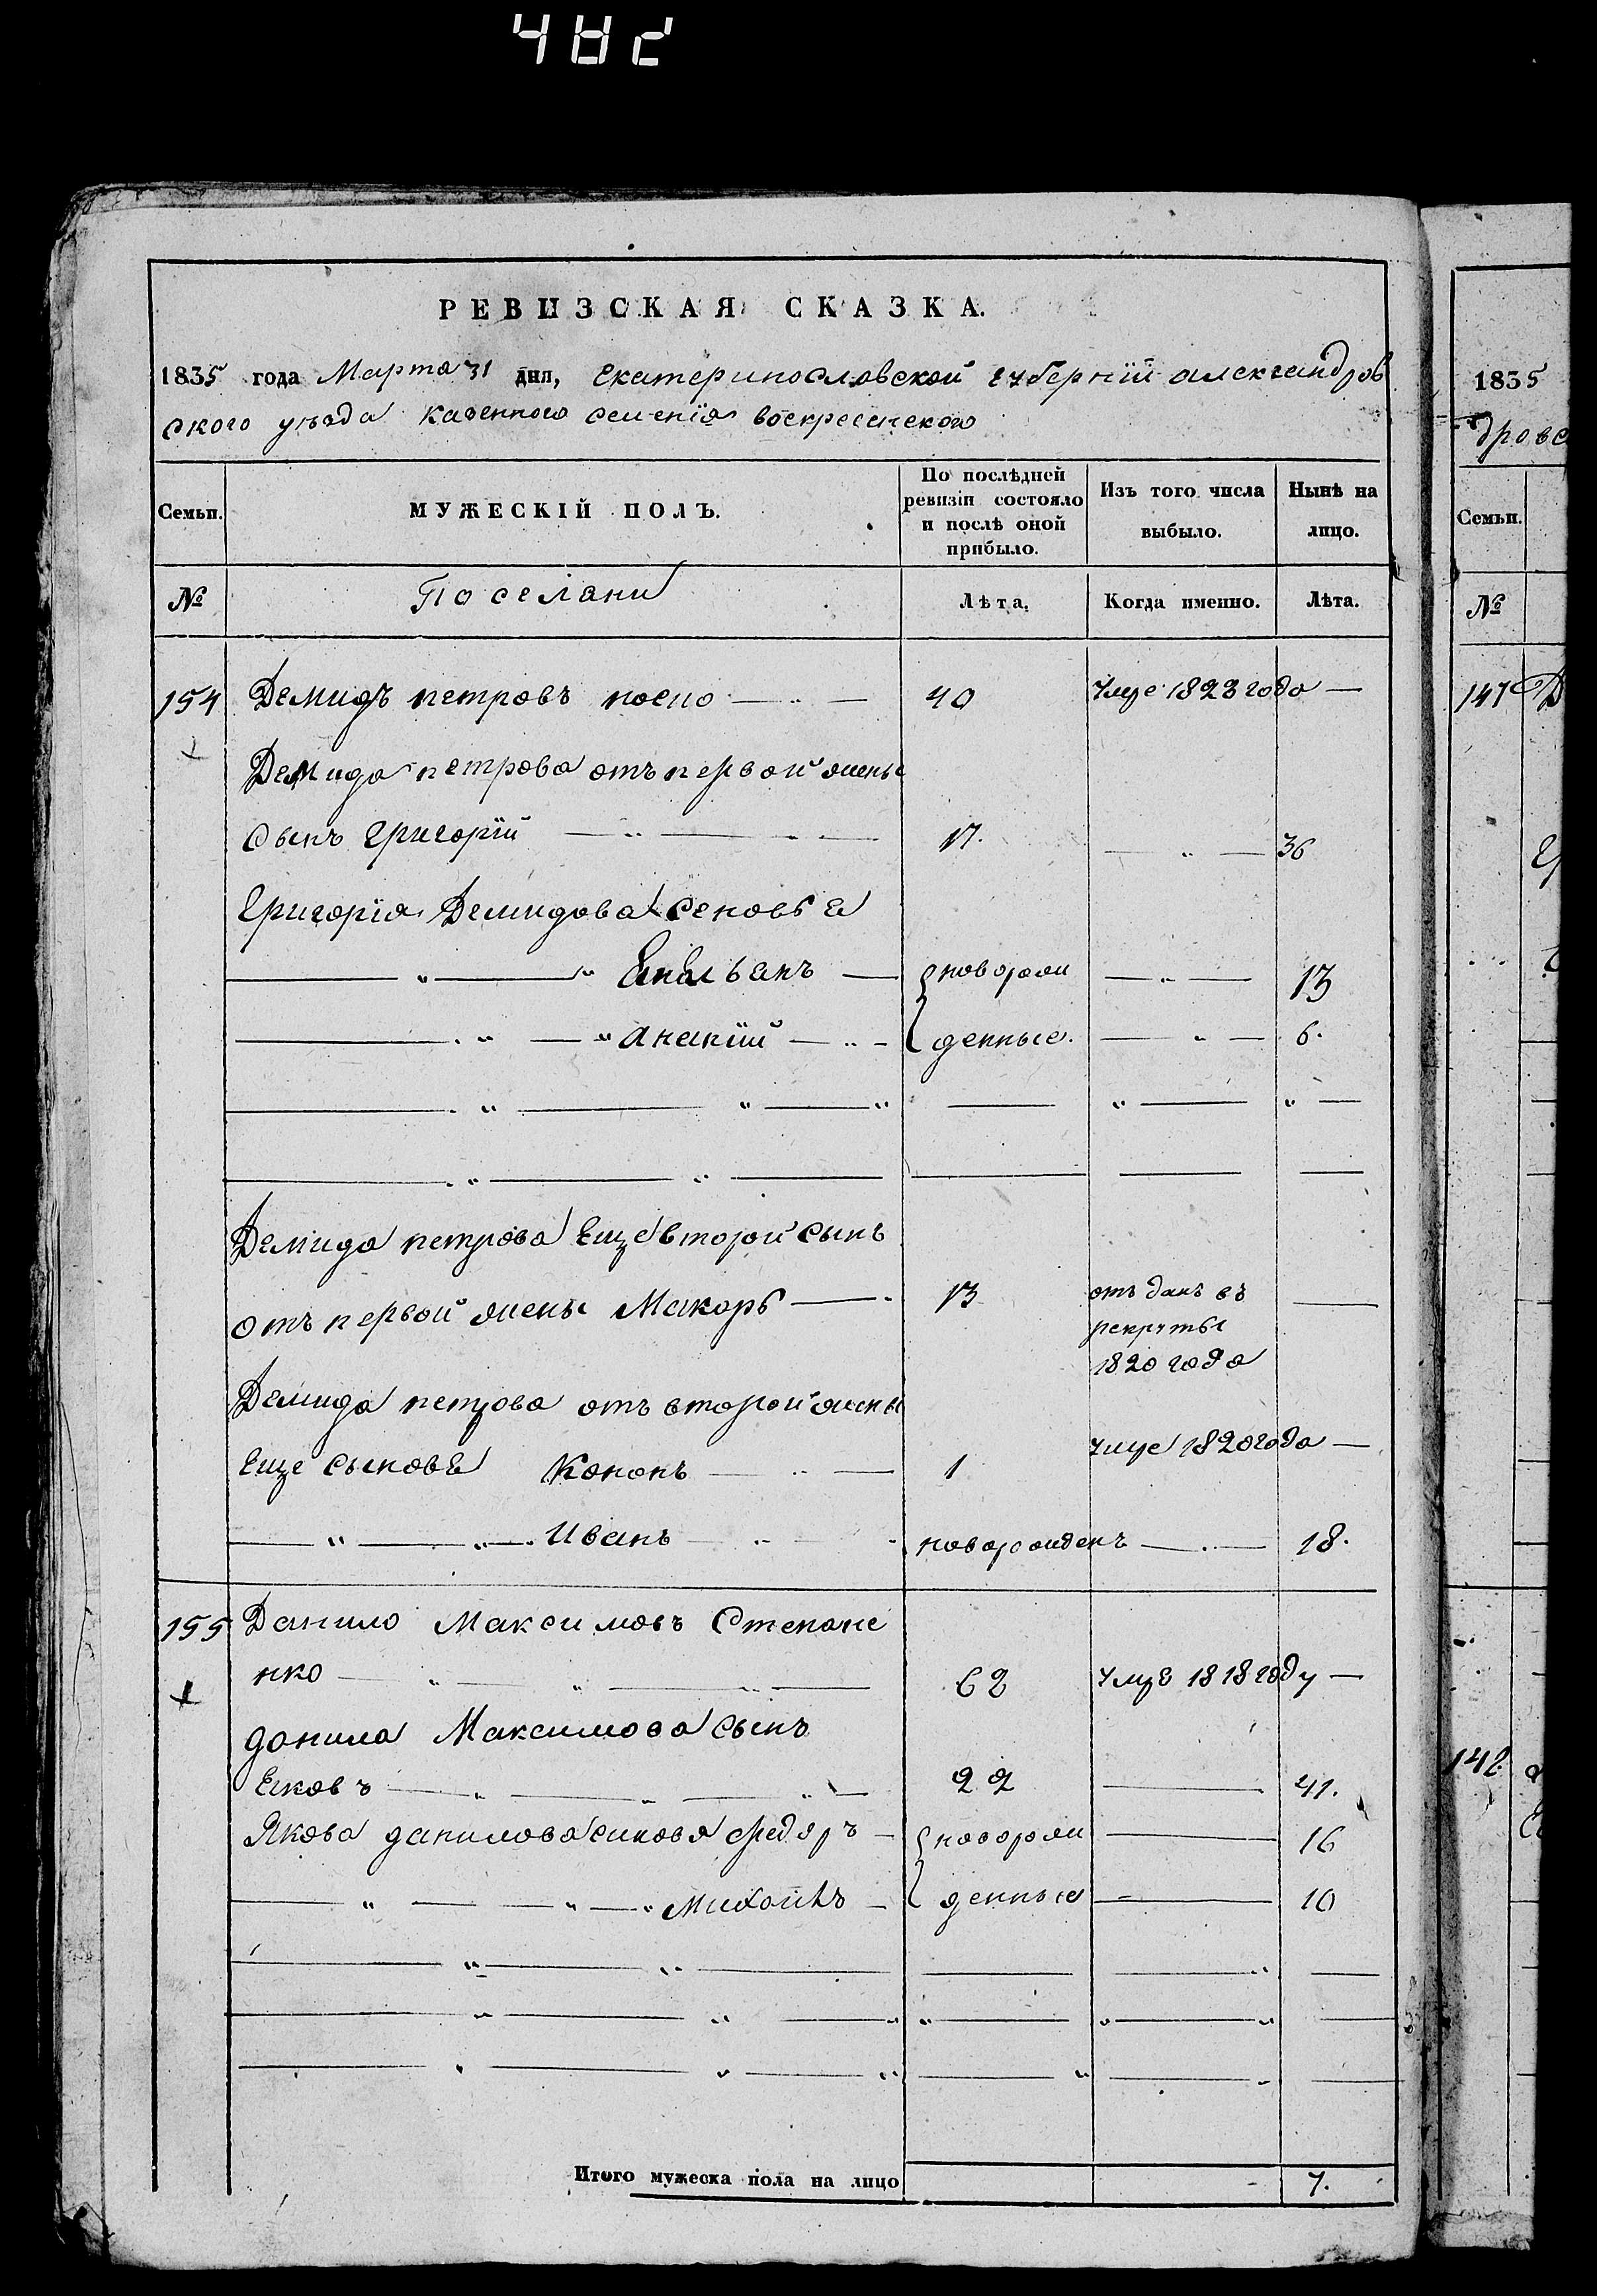 482
РЕВИЗСКАЯ СКАЗКА.
1835 года Марта 31 дня, екатеринославской губернїй александров
ского уезда казенного селенїя воскресенского
Семьи. МУЖЕСКІЙ ПОЛЪ. По послѣдней ревизіи состояло и послѣ оной прибыло. Изъ того числа выбыло. Нынѣ на лицо.
№ Поселяни Лѣта. Когда именно. Лѣта.
154 Демидъ петровъ носко 40 умре 1823 года
Демида петрова отъ первой жены
сынъ Григорїй 17. 36
Григорїя Демидова сеновья
Емельянъ новорож 13
ананїй денные. 6.
Демида петрова еще второй сынъ
отъ первой жены Макаръ 13 отъданъ въ
рекруты
1820 года
Демида петрова отъ второй жены
еще сыновья Кононъ 1 умре 1820 года
Иванъ новорожденъ 18.
155 Данило Максимовъ Степане
нко 62 умре 1818 году
данила Максимова сынъ
Яковъ 22 41.
Якова данилова синовя федоръ новорож 16
Михайлъ денные 10
Итого мужеска пола на лицо 7.
1835
дровс
Семьи.
№
147
148